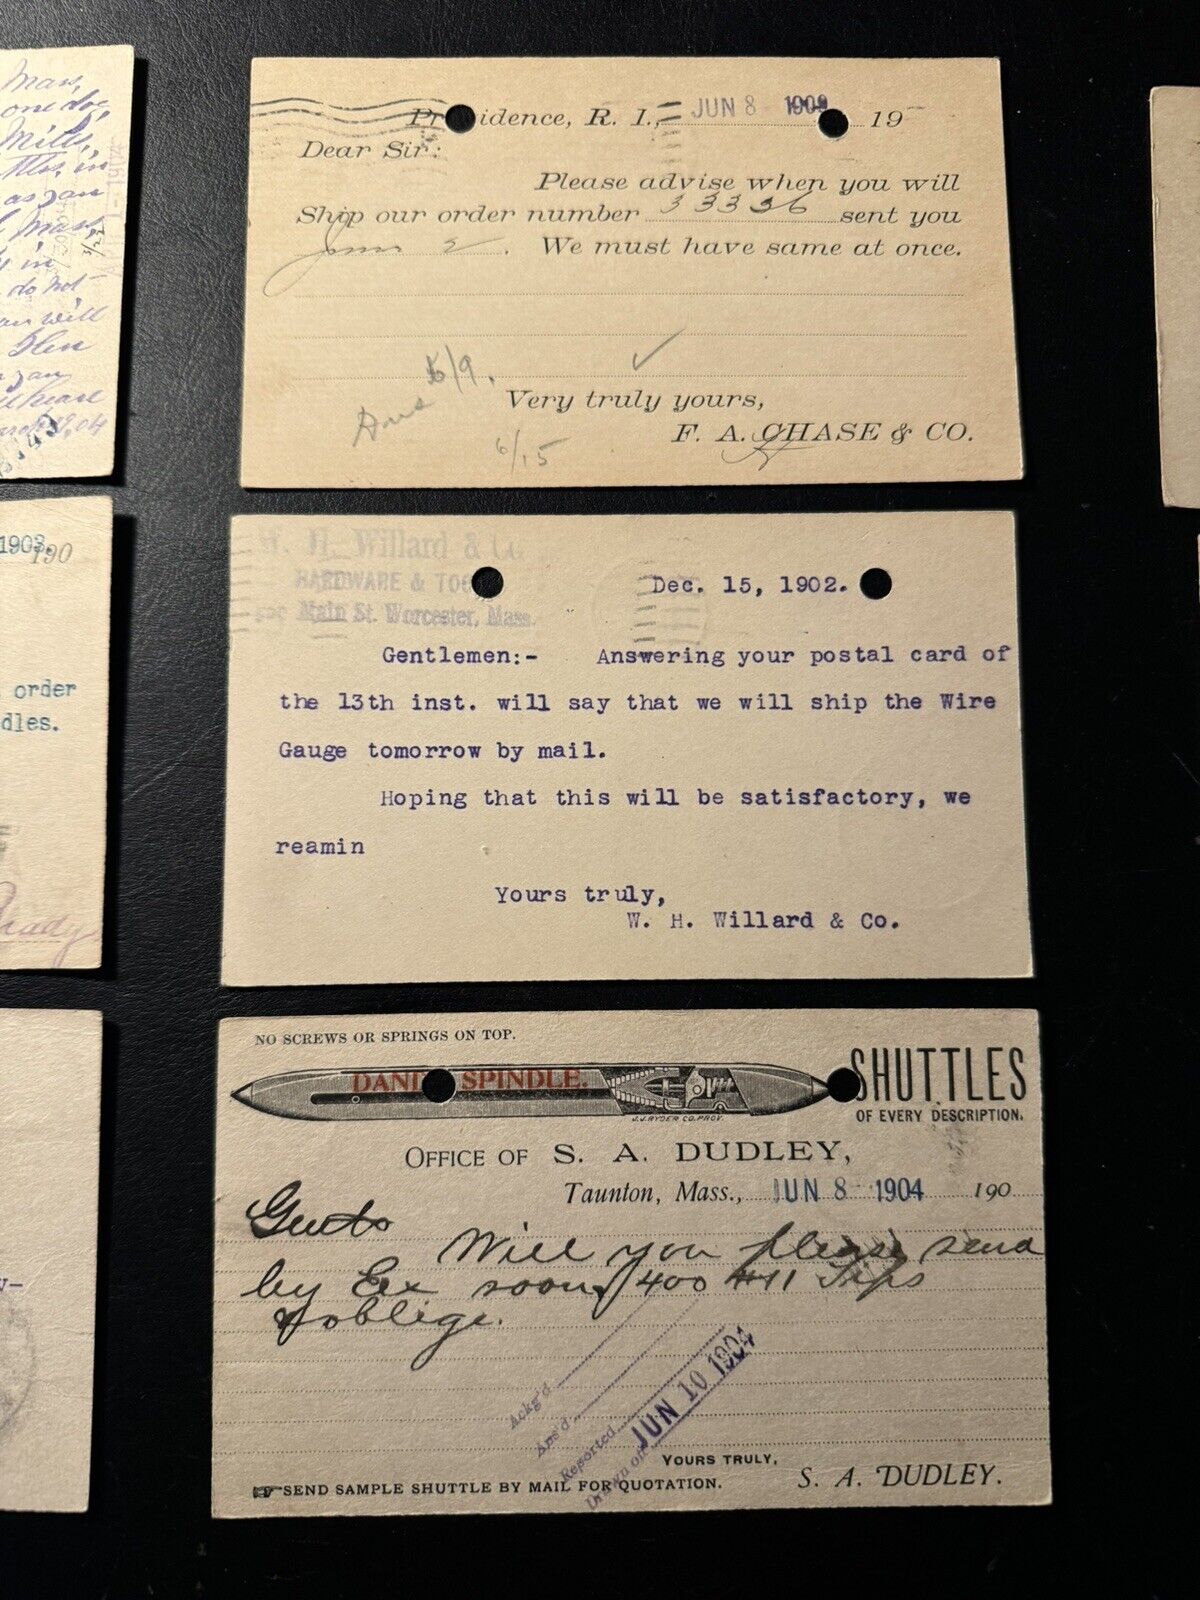 Mass,
one doz
Mills,
in
as you
Mass,
in
do not
will
1903.
190
order
dles.
Providence, R. I., JUN 8 1903 19
Dear Sir:
Please advise when you will
Ship our order number 33336 sent you
June 2. We must have same at once.
6/9.
Very truly yours,
6/15
F. A. CHASE & CO.
W. H. Willard & Co
HARDWARE & TOO
Main St. Worcester, Mass.
Dec. 15, 1902.
Gentlemen:- Answering your postal card of
the 13th inst. will say that we will ship the Wire
Gauge tomorrow by mail.
Hoping that this will be satisfactory, we
reamin
Yours truly,
W. H. Willard & Co.
NO SCREWS OR SPRINGS ON TOP.
DAND SPINDLE.
J.J.RYDER CO.PROV.
SHUTTLES
OF EVERY DESCRIPTION.
OFFICE OF S. A. DUDLEY,
Taunton, Mass., JUN 8 1904 190
Gents
Will you please send
by Ex soon 1400 #11 Tips
& oblige.
Ackg'd
Ans'd
Reported
Drawn on
JUN 10 1904
YOURS TRULY,
SEND SAMPLE SHUTTLE BY MAIL FOR QUOTATION.
S. A. DUDLEY.